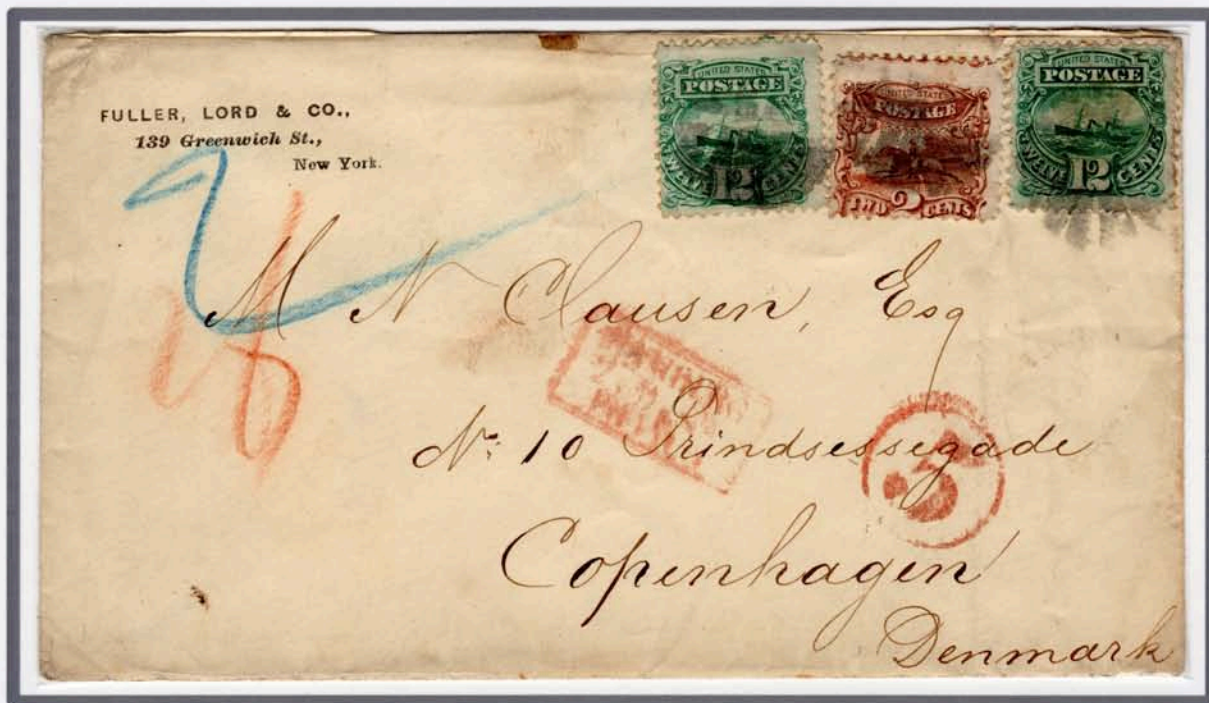 FULLER, LORD & CO.,
139 Greenwich St.,
New York.
UNITED STATES
POSTAGE
TWELVE 12 CENTS
UNITED STATES
POSTAGE
TWO 2 CENTS
UNITED STATES
POSTAGE
TWELVE 12 CENTS
2
M N Clausen, Esq
No: 10 Prindsessegade
Copenhagen
Denmark